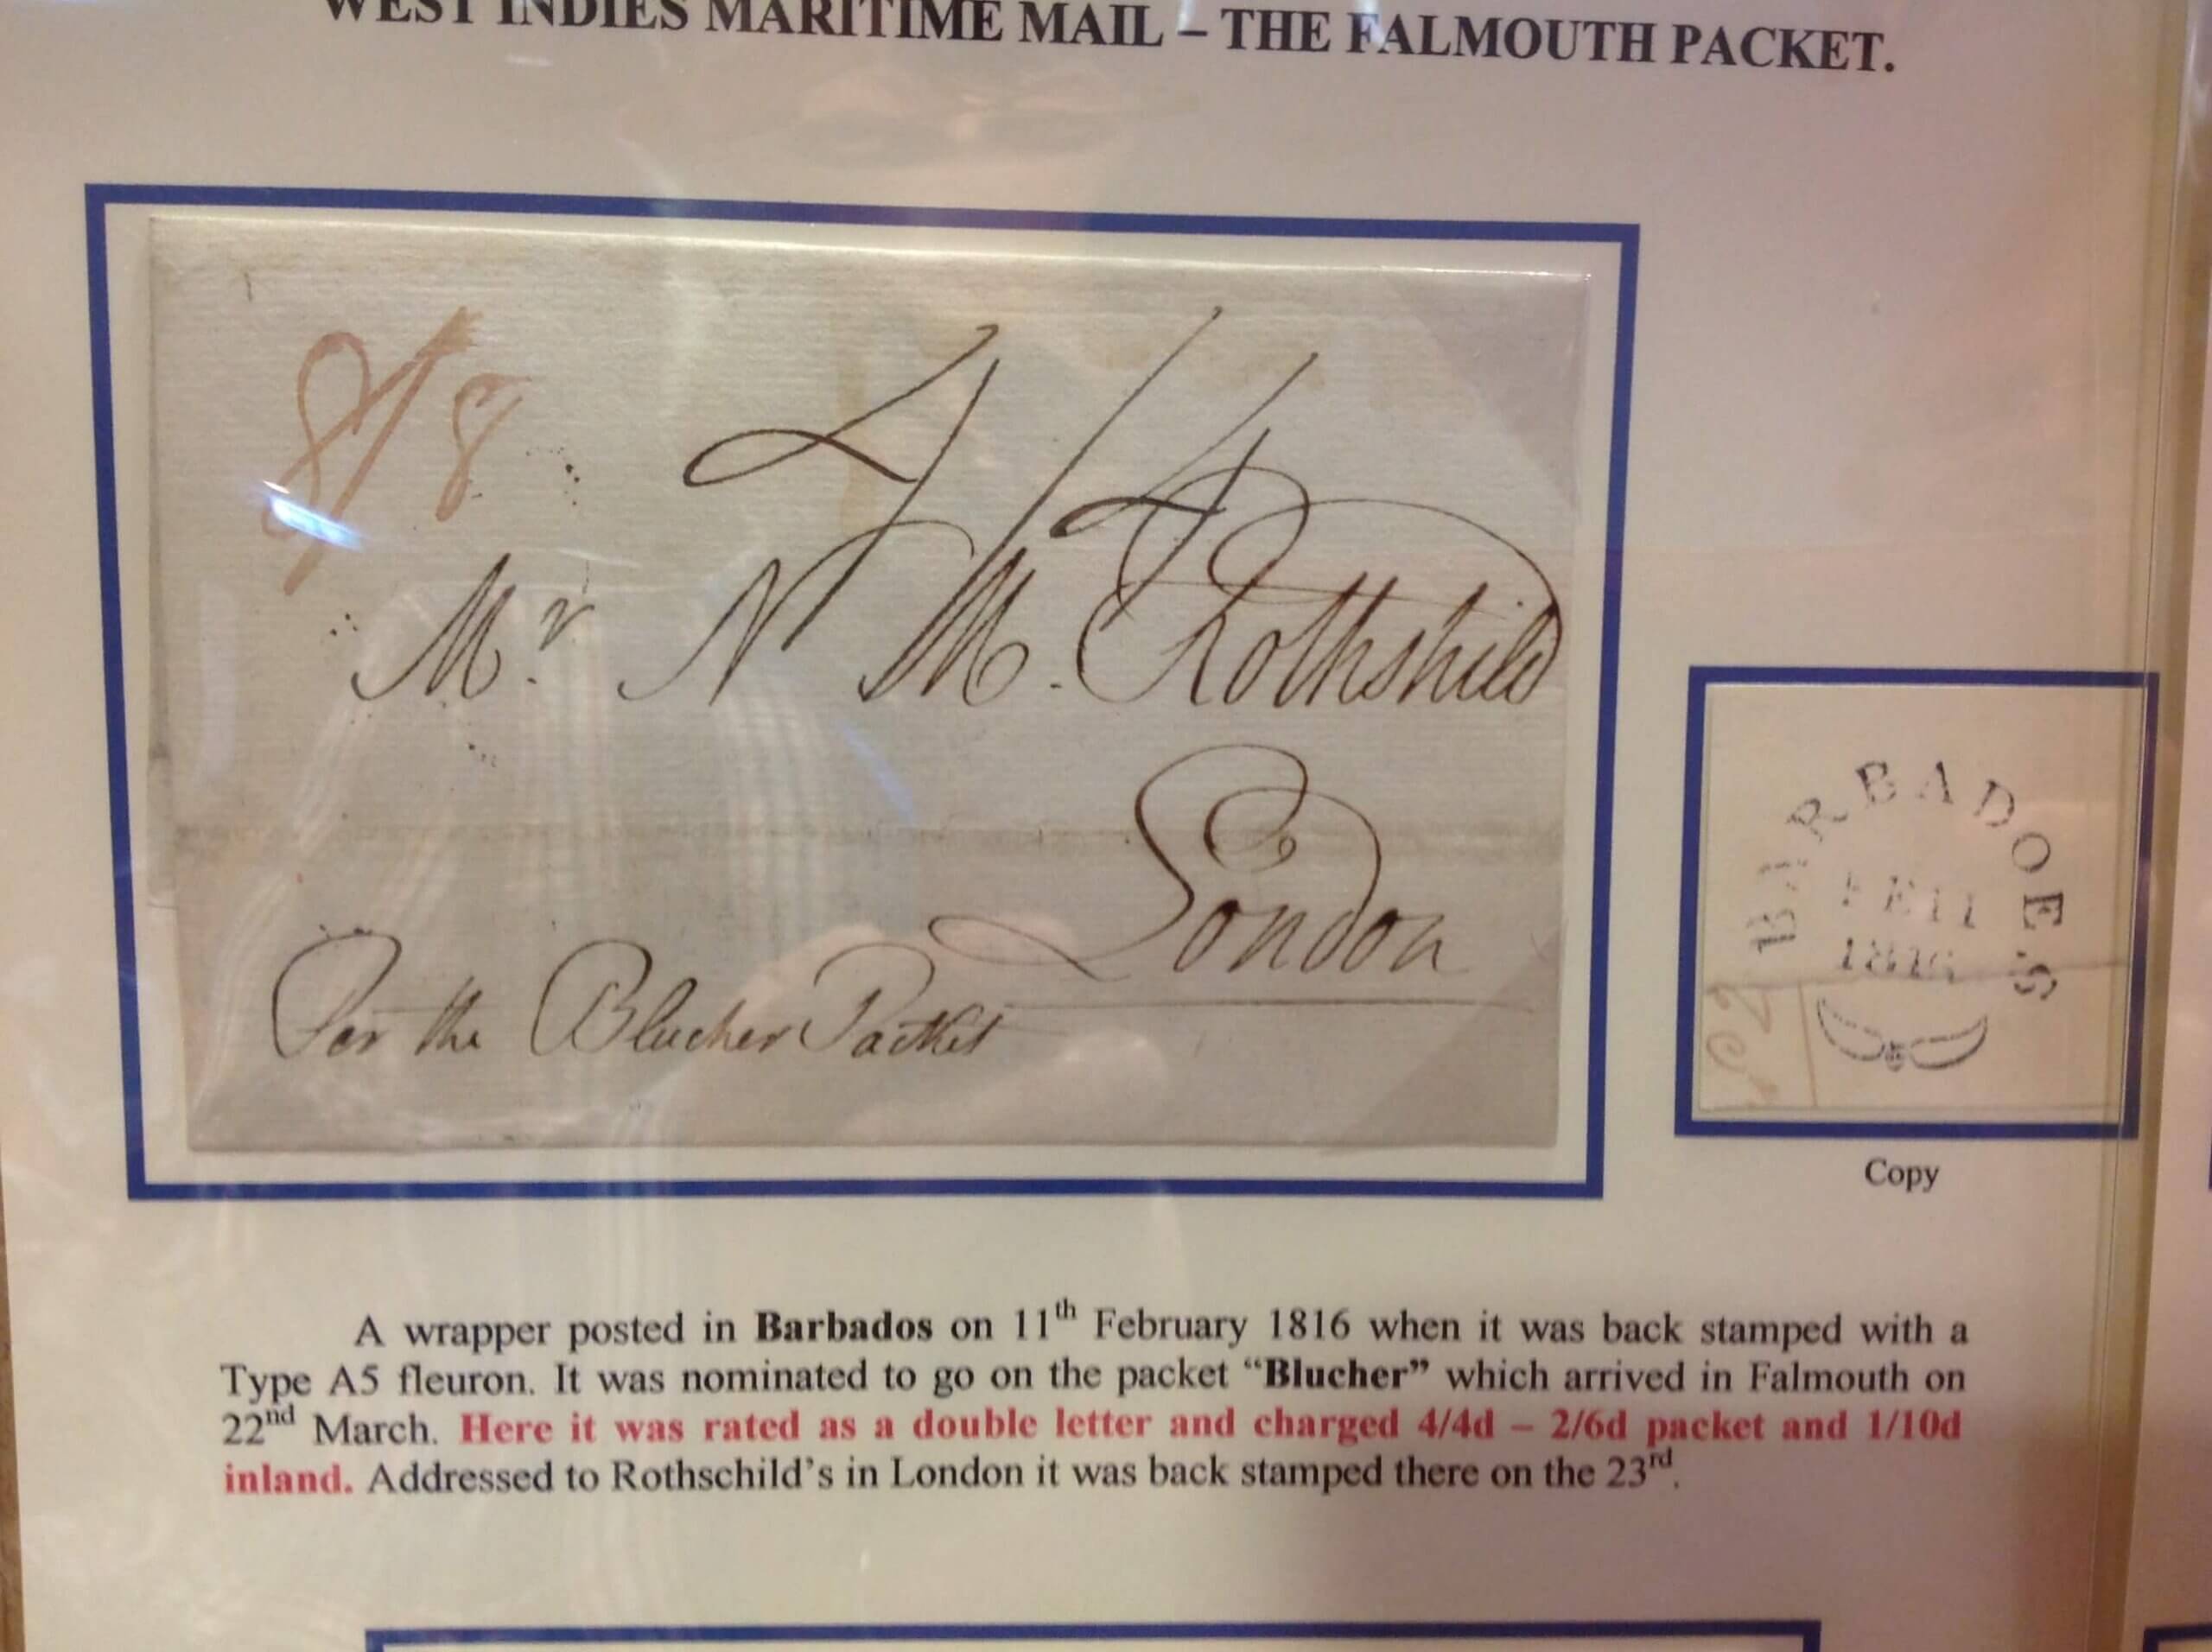 WEST INDIES MARITIME MAIL – THE FALMOUTH PACKET.
8/8
4/4
Mr. N M. Rothshild
London
Per the Blucher Packet
BARBADOES
FE 11
1816
Copy
A wrapper posted in Barbados on 11th February 1816 when it was back stamped with a
Type A5 fleuron. It was nominated to go on the packet “Blucher” which arrived in Falmouth on
22nd March. Here it was rated as a double letter and charged 4/4d – 2/6d packet and 1/10d
inland. Addressed to Rothschild’s in London it was back stamped there on the 23rd.